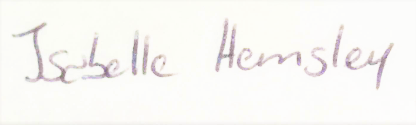 Isabelle Hemsley